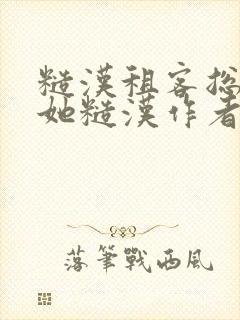 糙漢租客抛
她糙漢作者
落筆戰西風